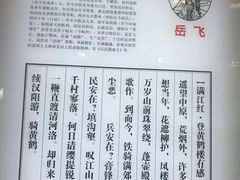 岳飞
【满江红·登黄鹤楼有感】
遥望中原,荒烟外、许多
想当年、花遮柳护,凤楼
万岁山前珠翠绕,蓬壶殿
歌作。到而今、铁骑满郊
尘恶。 兵安在?膏锋
民安在?填沟壑。叹江山
千村寥落。何日请缨提锐
一鞭直渡清河洛。却归来
续汉阳游,骑黄鹤。